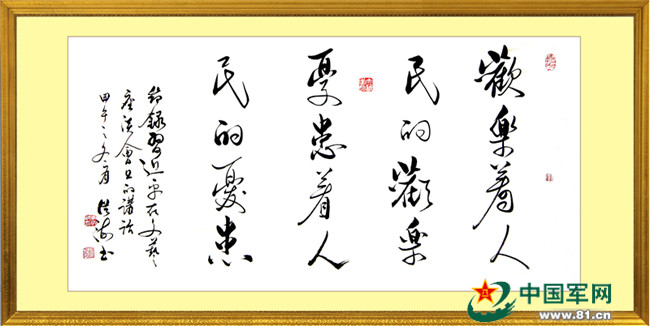 歡樂着人
民的歡樂
憂患着人
民的憂患
節錄習近平在文藝
座談會上的講話
甲午之冬月 書
中国军网
www.81.cn